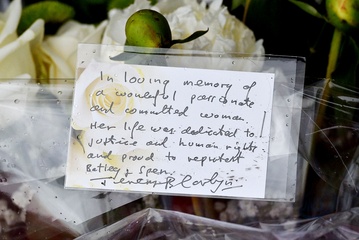 In loving memory of
a wonderful passionate
and committed woman.
Her life was dedicated to
justice and human rights
and proud to represent
Batley & Spen.
Jeremy Corbyn